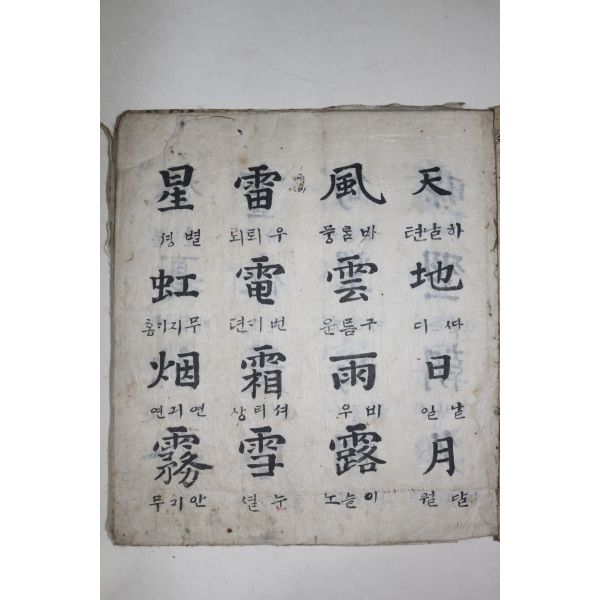 天
하날텬
地
싸디
日
날일
月
달월
風
바룸풍
雲
구름운
雨
비우
露
이슬노
雷
우뢰뢰
電
번기뎐
霜
셔리상
雪
눈셜
星
별셩
虹
무지기홍
烟
연긔연
霧
안기무